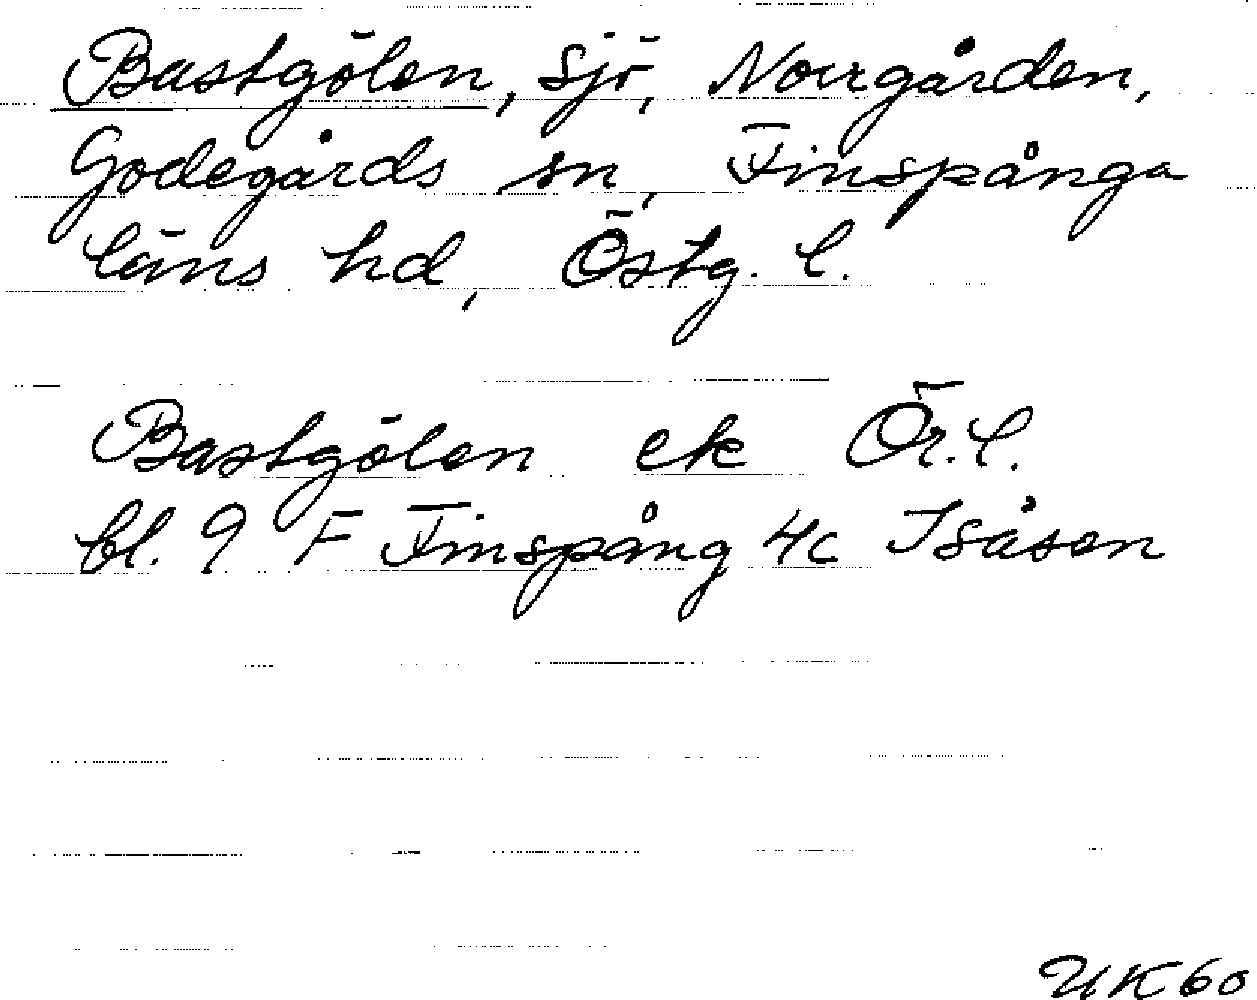 Bastgölen, sjö, Norrgården,
Godegårds sn, Finspånga
läns hd, Östg. l.
Bastgölen ek Ör. l.
bl. 9 F Finspång 4c Isåsen
UK 60